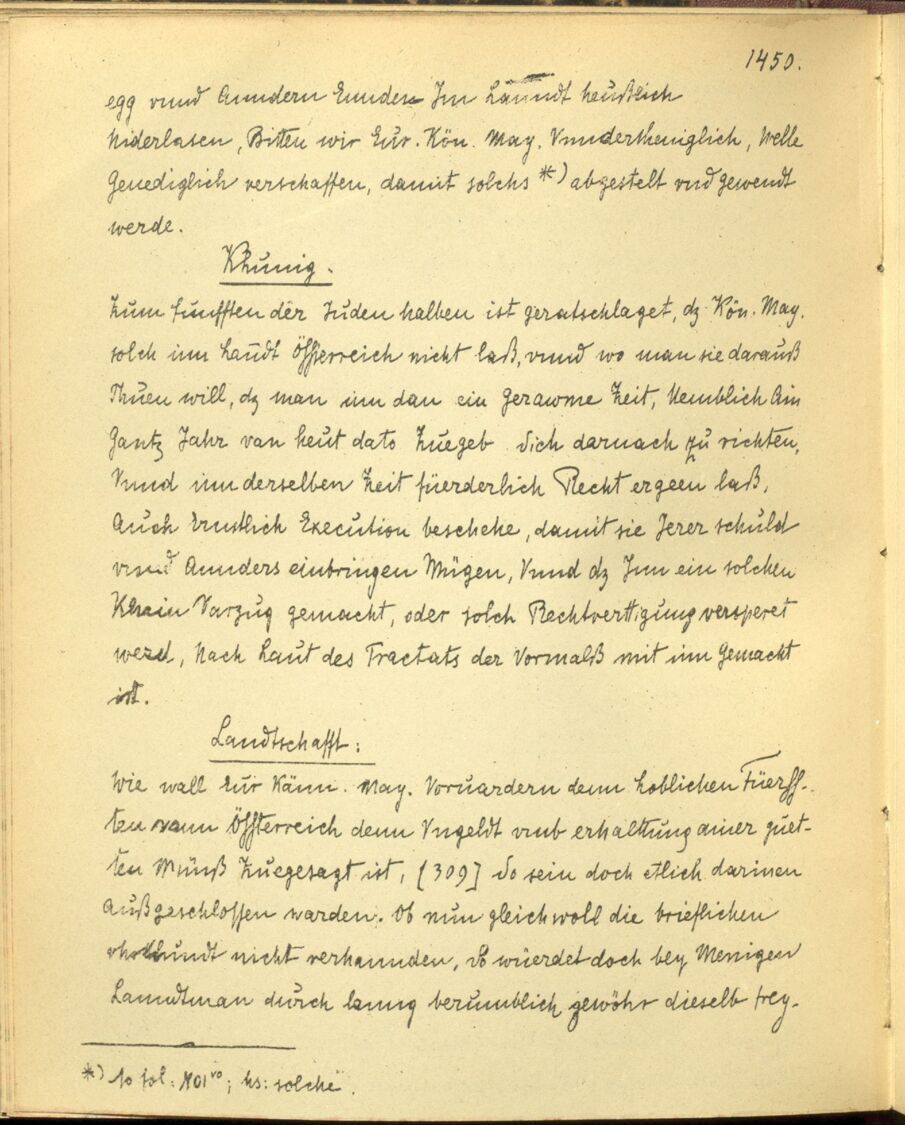 1450.
egg vnnd Anndern Ennden Im Lanndt heußlich
Niderlasen, Bitten wir Eur. Kön. May. Vnndertheniglich, Welle
Genediglich verschaffen, damit solchs *) abgestelt vnd gewendt
werde.
Khunig.
Zum funfften der Juden halben ist geratschlaget, dz Kön. May.
solch inn Landt Össterreich nicht laß, vnnd wo man sie darauß
Thuen will, dz man inn dan ein Gerawme Zeit, Nemblich Ain
Gantz Jahr van heut dato Zuegeb sich darnach zu richten,
Vnnd inn derselben Zeit füerderlich Recht ergeen laß,
Auch Ernstlich Execution beschehe, damit sie Jerer schuld
vnnd Annders einbringen Mügen, Vnnd dz Inn ein solchen
Khain Varzug gemacht, oder solch Rechtverttigung versperet
werd, Nach Laut des Tractats der Vormalß mit inn Gemacht
ist.
Landtschafft:
Wie wall Eur Känn. May. Voruardern denn Loblichen Füerss-
ten vann Össterreich denn Vngeldt vmb erhalttung ainer guet-
ten Münß Zuegesagt ist, [309] So sein doch etlich darinen
Außgeschlossen warden. Ob nun gleichwoll die brieflichen
vhrkhundt nicht verhannden, So wüerdet doch bey Menigen
Lanndtman durch lanng berumblich gewöhr dieselb frey-
*) So fol: 101vo; hs: solche.